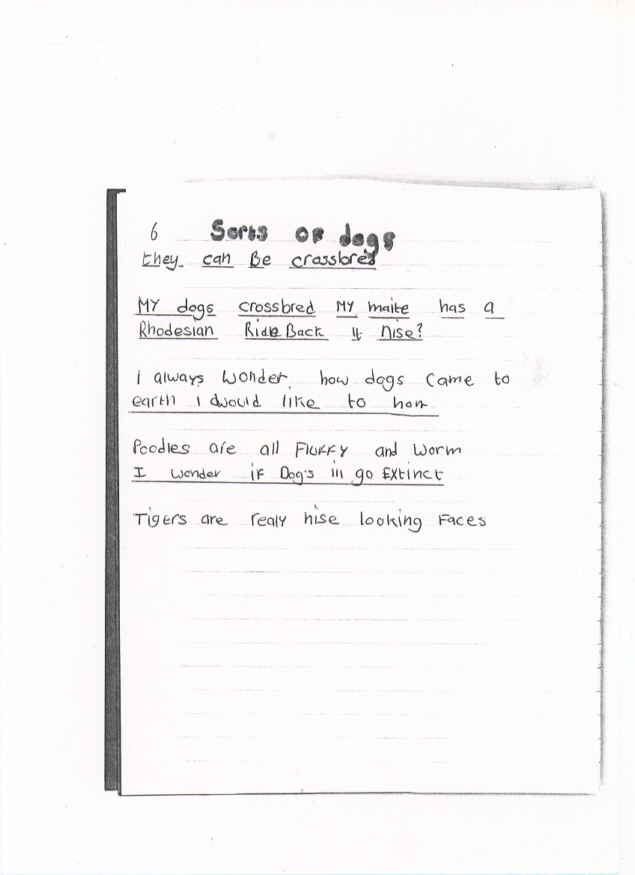 6 Sorts of dogs
they can Be crossbred
MY dogs crossbred MY maite has a
Rhodesian Ridge Back it nise?
I always Wonder how dogs came to
earth I dwould like to
Poodles are all Fluffy and Worm
I wonder if Dog's in go Extinct
Tigers are realy nise looking Faces